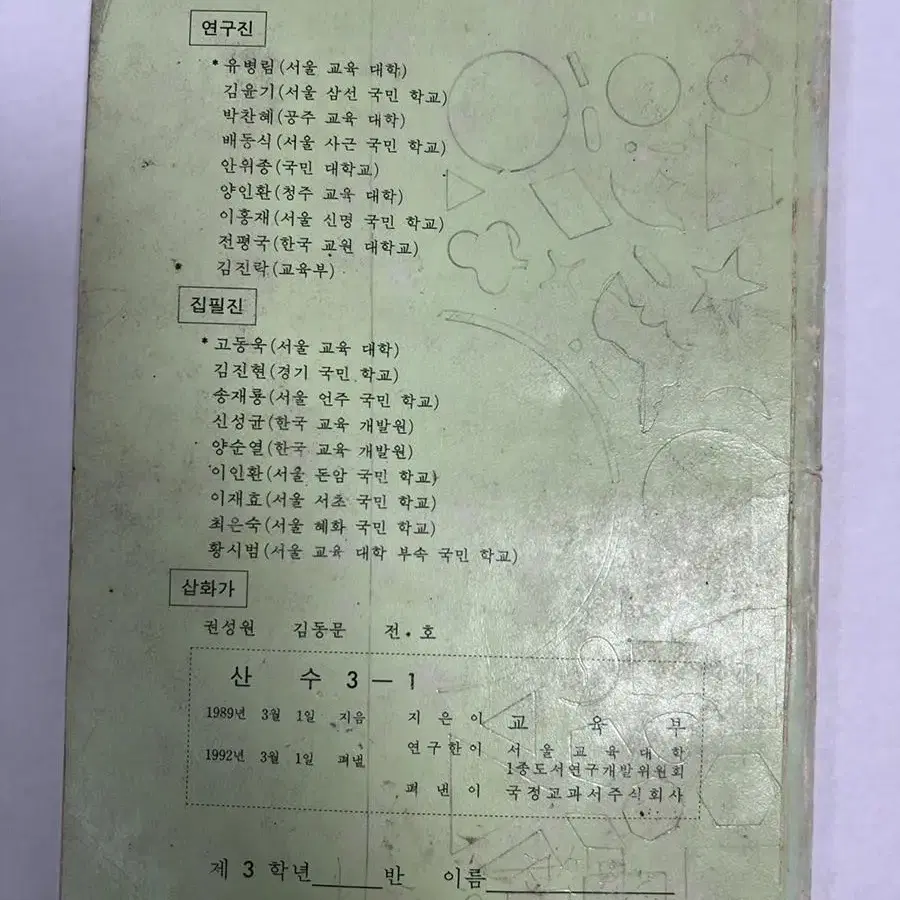 연구진
* 유병림(서울 교육 대학)
김윤기(서울 삼선 국민 학교)
박찬혜(공주 교육 대학)
배동식(서울 사근 국민 학교)
안위종(국민 대학교)
양인환(청주 교육 대학)
이홍재(서울 신명 국민 학교)
전평국(한국 교원 대학교)
김진락(교육부)
집필진
* 고동욱(서울 교육 대학)
김진현(경기 국민 학교)
송재룡(서울 언주 국민 학교)
신성균(한국 교육 개발원)
양순열(한국 교육 개발원)
이인환(서울 돈암 국민 학교)
이재효(서울 서초 국민 학교)
최은숙(서울 혜화 국민 학교)
황시범(서울 교육 대학 부속 국민 학교)
삽화가
권성원 김동문 전 호
산 수 3-1
1989년 3월 1일 지음 지은이 교 육 부
1992년 3월 1일 펴냄 연구한이 서울교육대학
1종도서연구개발위원회
펴낸이 국정교과서주식회사
제 3 학년____반 이름__________